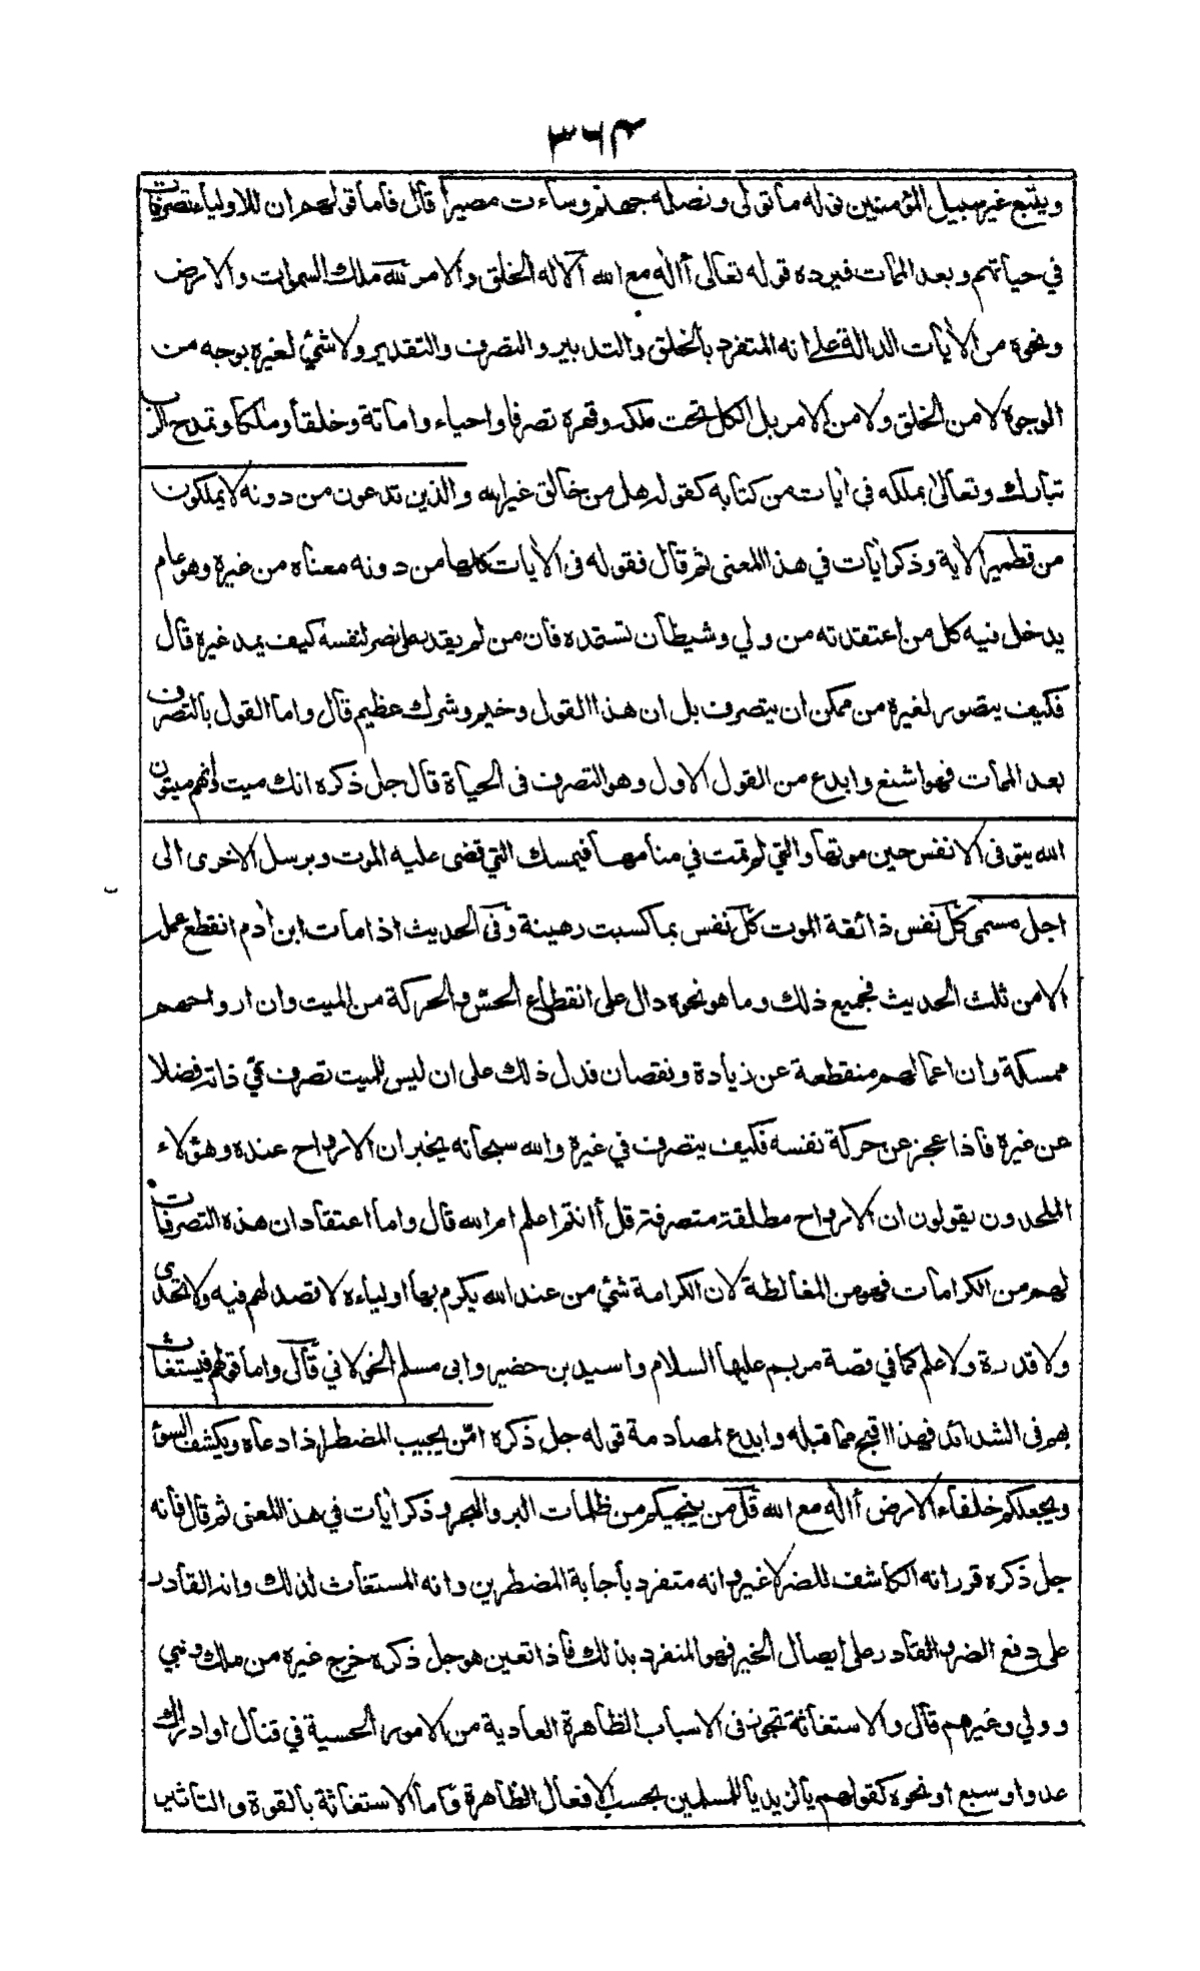 ٣٦٣
ويتبع غير سبيل المؤمنين نوله ما تولى ونصله جهنم وساءت مصيرا قال فاما قولهم ان للاولياء تصرفات
في حياتهم وبعد الممات فيرده قوله تعالى أاله مع الله الا له الخلق والامر لله ملك السموات والارض
ونحوه من الأيات الدالة على انه المتفرد بالخلق والتدبير والتصرف والتقدير ولا شئ لغيره بوجه من
الوجوه لا من الخلق ولا من الامر بل الكل تحت ملكه وقهره تصرفا واحياء واماتة وخلقا وملكا وتمدح الرب
تبارك وتعالى بملكه في أيات من كتابه كقوله هل من خالق غير الله والذين تدعون من دونه لا يملكون
من قطمير الأية وذكر أيات في هذا المعنى ثم قال فقوله في الأيات كلها من دونه معناه من غيره وهو عام
يدخل فيه كل من اعتقدته من ولي وشيطان تستمده فان من لم يقدر على نصر لنفسه كيف يمد غيره قال
فكيف يتصور لغيره من ممكن ان يتصرف بل ان هذا القول وخيم وشرك عظيم قال واما القول بالتصرف
بعد الممات فهو اشنع وابدع من القول الاول وهو التصرف في الحياة قال جل ذكره انك ميت وانهم ميتون
الله يتوفى الانفس حين موتها والتي لم تمت في منامها فيمسك التي قضى عليه الموت ويرسل الاخرى الى
اجل مسمى كل نفس ذائقة الموت كل نفس بما كسبت رهينة وفي الحديث اذا مات ابن أدم انقطع عمله
الا من ثلث الحديث فجميع ذلك وما هو نحوه دال على انقطاع الحس والحركة من الميت وان ارواحهم
ممسكة وان اعمالهم منقطعة عن زيادة ونقصان فدل ذلك على ان ليس للميت تصرف في ذاته فضلا
عن غيره فاذا عجز عن حركة نفسه فكيف يتصرف في غيره والله سبحانه يخبر ان الارواح عنده وهؤلاء
الملحدون يقولون ان الارواح مطلقة متصرفة قل أانتم اعلم ام الله قال واما اعتقاد ان هذه التصرفات
لهم من الكرامات فهو من المغالطة لان الكرامة شئ من عند الله يكرم بها اولياءه لا قصد لهم فيه ولا تحدى
ولا قدرة ولا علم كما في قصة مريم عليها السلام واسيد بن حضير وابى مسلم الخولاني قال واما قولهم فيستغاث
بهم في الشدائد فهذا اقبح مما قبله وابدع لمصادمة قوله جل ذكره امن يجيب المضطر اذا دعاه ويكشف السوء
ويجعلكم خلفاء الارض أاله مع الله قل من ينجيكم من ظلمات البر والبحر وذكر أيات في هذا المعنى ثم قال فانه
جل ذكره قرر انه الكاشف للضر لا غيره وانه متفرد باجابة المضطرين وانه المستغاث لذلك وانه القادر
على دفع الضر والقادر على ايصال الخير فهو المنفرد بذلك فاذا تعين هو جل ذكره خرج غيره من ملك ونبي
وولي وغيرهم قال والاستغاثة تجوز في الاسباب الظاهرة العادية من الامور الحسية في قتال او ادراك
عدو او سبع او نحوه كقولهم يا لزيد يا للمسلمين بحسب الافعال الظاهرة واما الاستغاثة بالقوة والتاثير